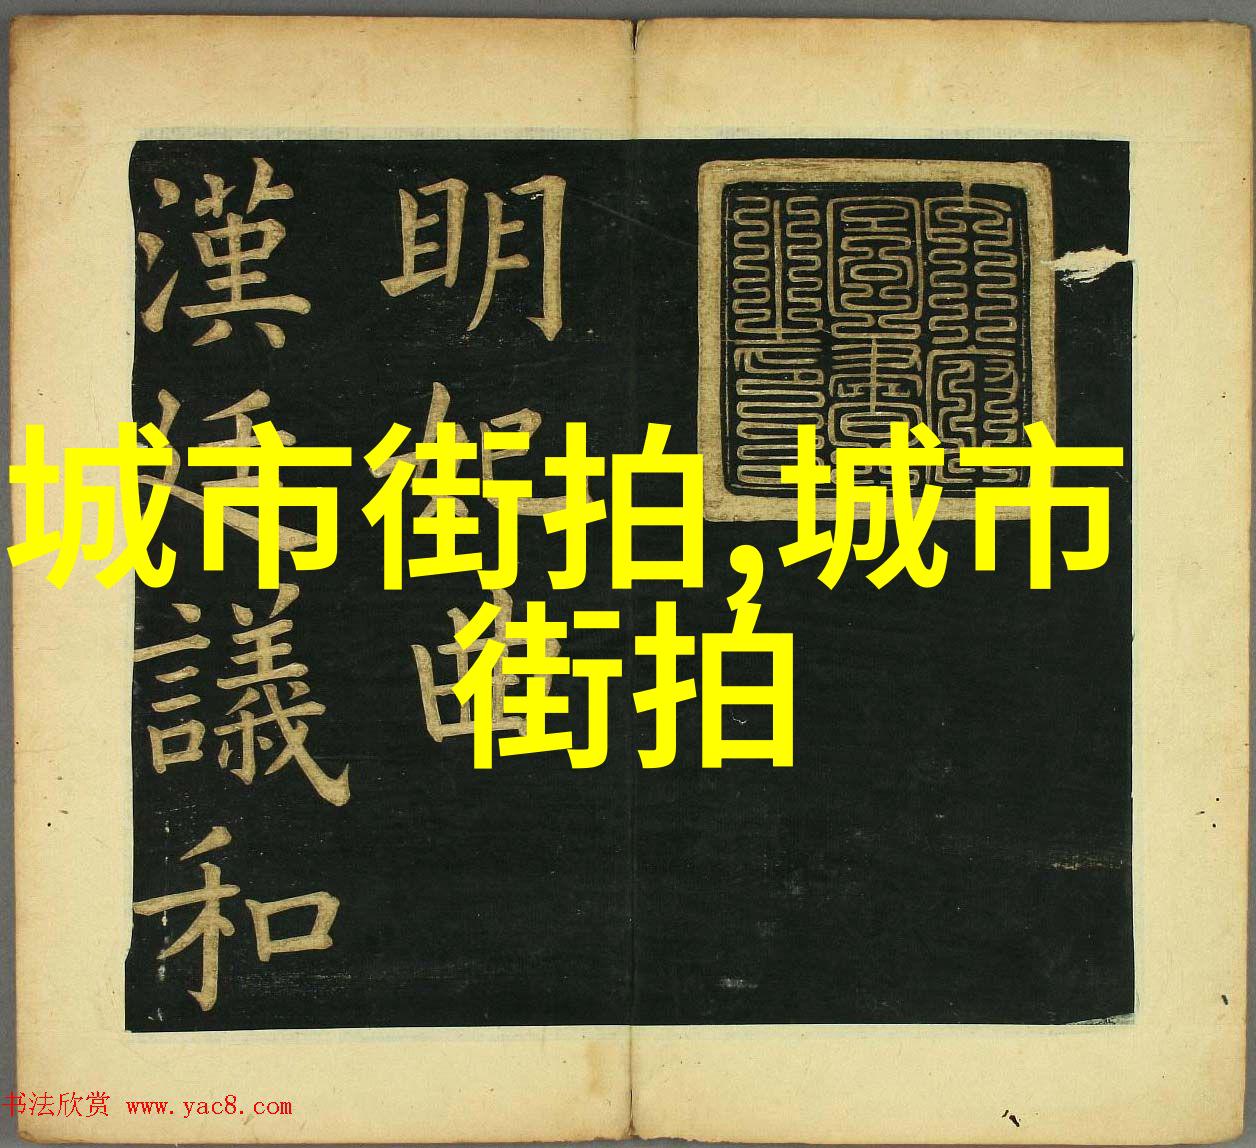 明妃曲
漢廷議和
城市街拍,城市
街拍
书法欣赏 www.yac8.com